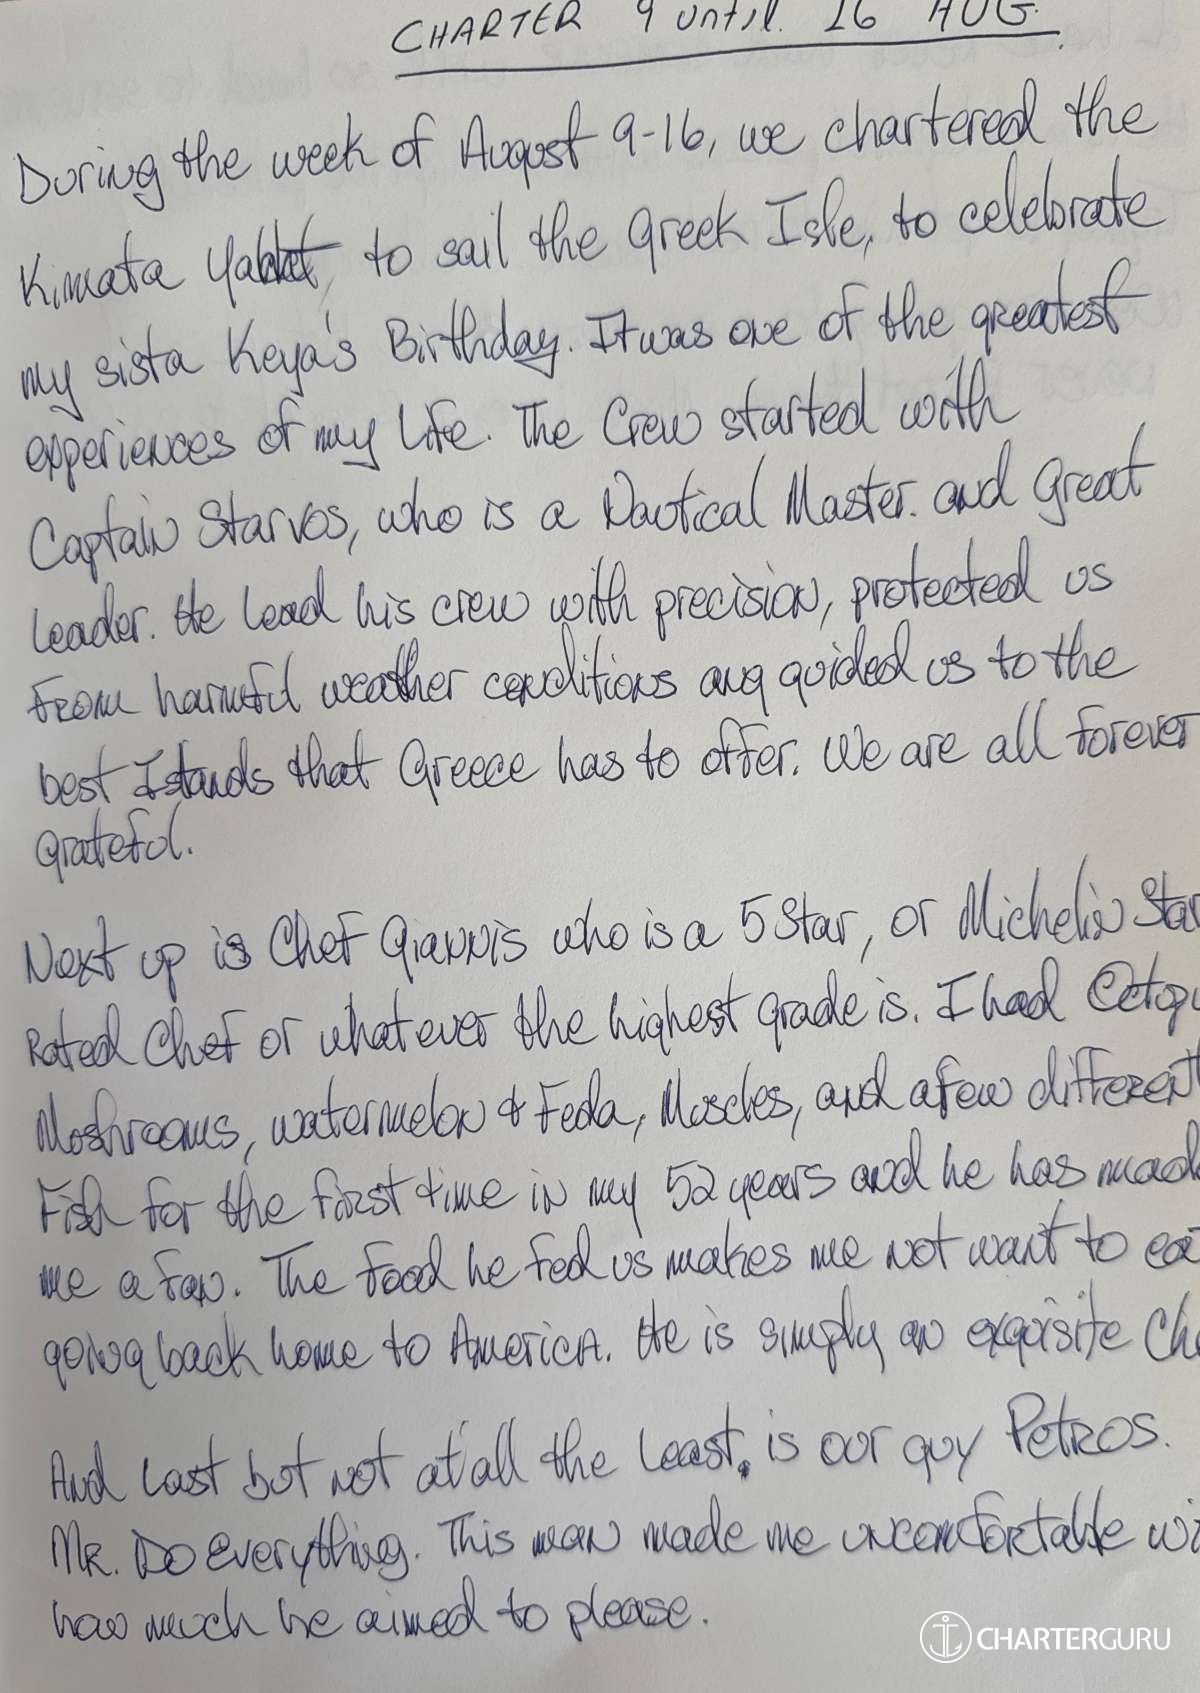 CHARTER 9 until 16 AUG.
During the week of August 9-16, we chartered the
Kimata Yacht, to sail the Greek Isle, to celebrate
my sista Keya's Birthday. It was one of the greatest
experiences of my Life. The Crew started with
Captain Starvos, who is a Nautical Master. and Great
leader. He lead his crew with precision, protected us
from harmful weather conditions ang guided us to the
best Islands that Greece has to offer. We are all forever
grateful.
Next up is Chef Giannis who is a 5 Star, or Michelin Star
Rated Chef or whatever the highest grade is. I had Octopu
Moshrooms, watermelon & Feda, Muscles, and a few different
Fish for the first time in my 52 years and he has made
me a fan. The food he fed us makes me not want to eat
going back home to America. He is simply an exquisite Che
And last but not at all the least. is our guy Petros.
Mr. Do Everything. This man made me uncomfortable wi
how much he aimed to please.
CHARTERGURU